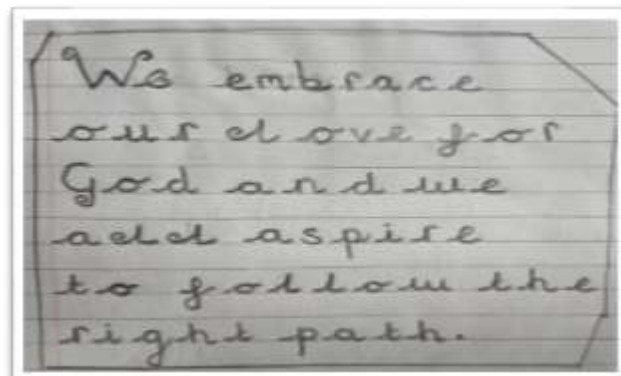 We embrace
our love for
God and we
all aspire
to follow the
right path.